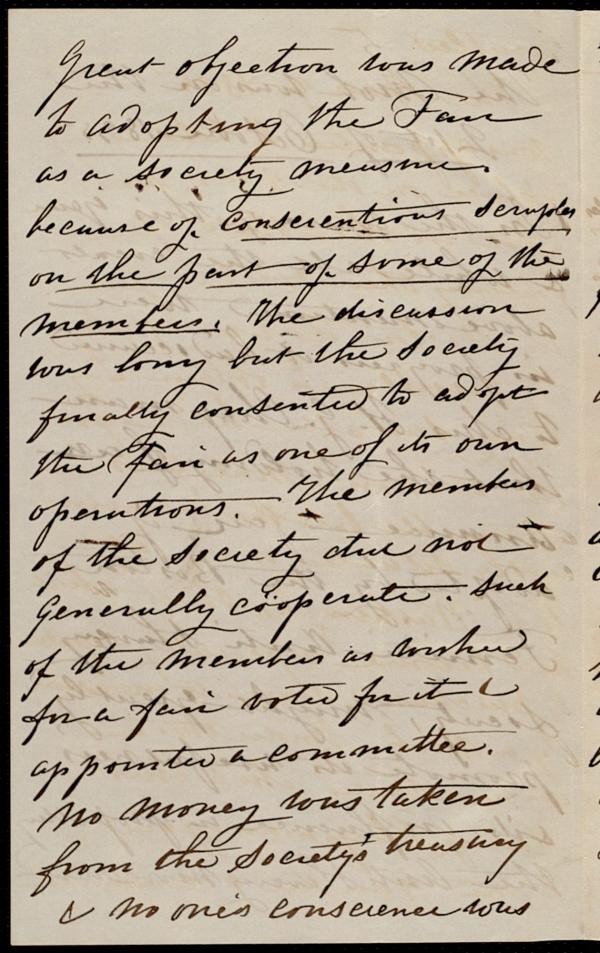 Great objection was made
to adopting the Fair
as a society measure.
because of conscientious scruples
on the part of some of the
members. The discussion
was long but the Society
finally consented to adopt
the Fair as one of its own
operations. The members
of the Society did not
generally coöperate. Such
of the members as wished
for a fair voted for it &
appointed a committee.
No money was taken
from the Society's treasury
& no one's conscience was